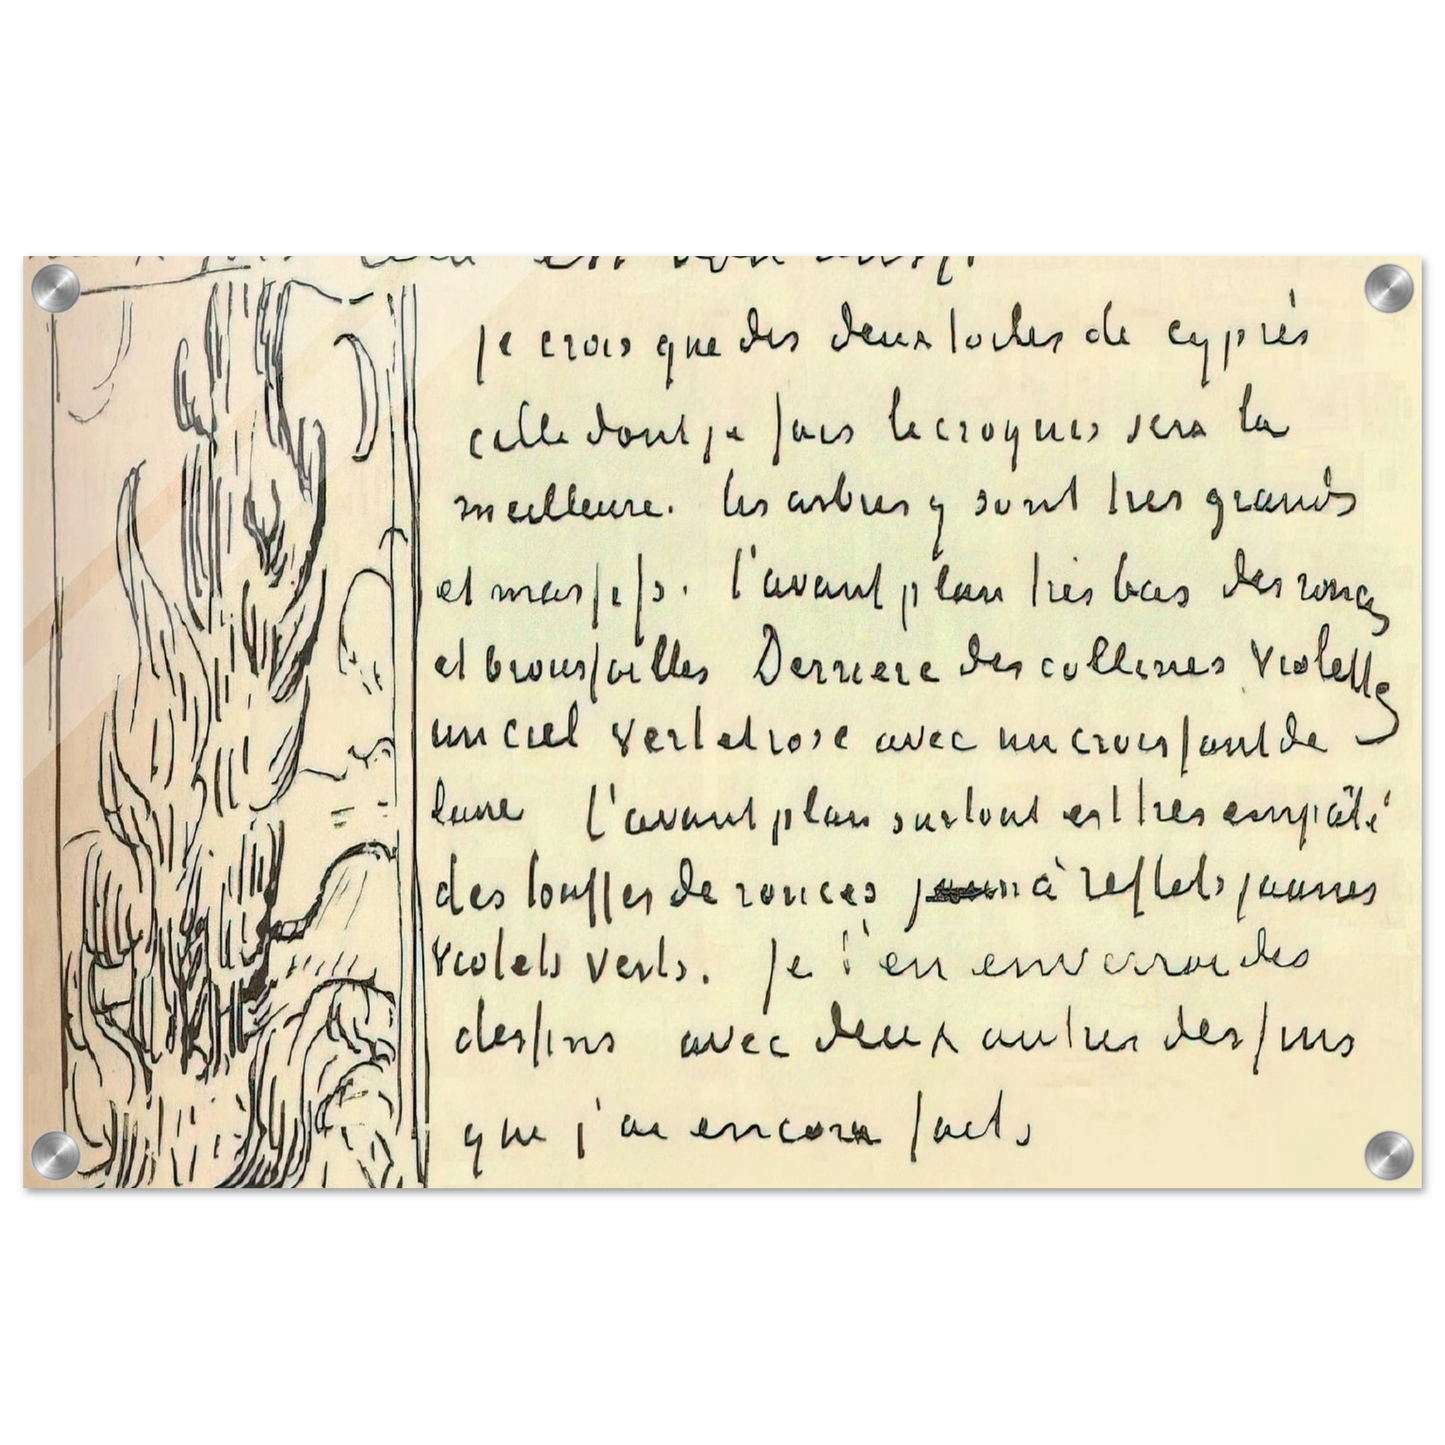 je crois que des deux toiles de cyprès
celle dont je fais le croquis sera la
meilleure. les arbres y sont très grands
et massifs. l'avant plan très bas des ronces
et broussailles Derriere des collines violettes
un ciel vert et rose avec un croissant de
lune l'avant plan surtout est très empâté
des touffes de ronces à reflets jaunes
violets verts. je t'en enverrai des
dessins avec deux autres dessins
que j'ai encore faits